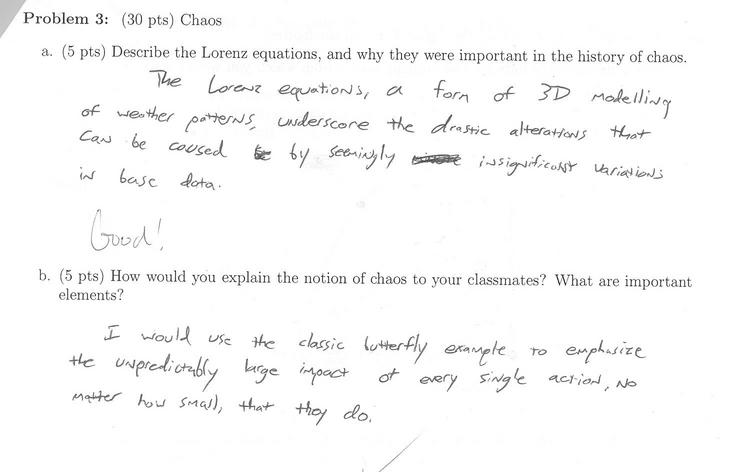 Problem 3: (30 pts) Chaos
a. (5 pts) Describe the Lorenz equations, and why they were important in the history of chaos.
The Lorenz equations, a form of 3D modelling
of weather patterns, underscore the drastic alterations that
can be caused by seemingly insignificant variations
in base data.
Good!
b. (5 pts) How would you explain the notion of chaos to your classmates? What are important
elements?
I would use the classic butterfly example to emphasize
the unpredictably large impact of every single action, no
matter how small, that they do.